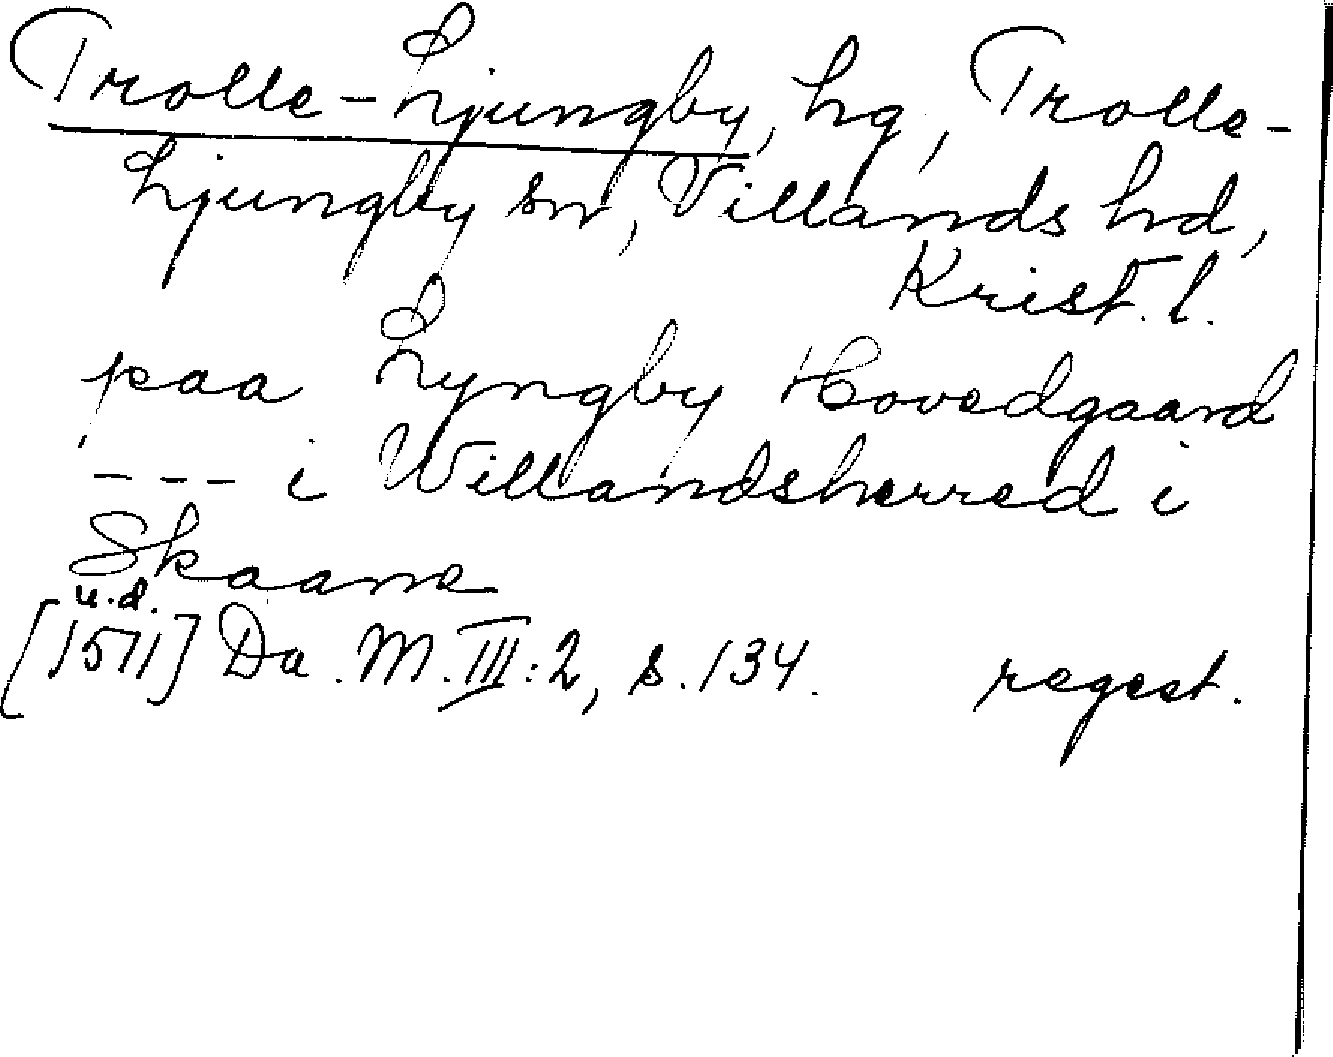 Trolle-Ljungby, hg, Trolle-
Ljungby sn, Villands hd,
Krist. l.
paa Lyngby Hovedgaard
--- i Willandsherred i
Skaane
u.d.
[1571] Da. M. III:2, s. 134. regest.